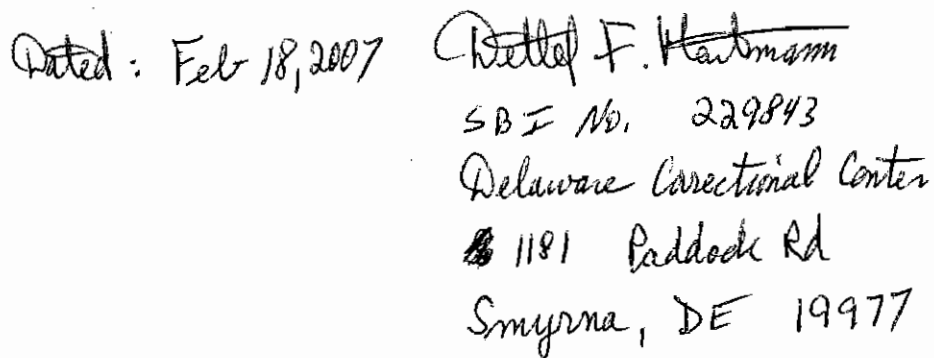 Dated: Feb 18, 2007 Detlef F. Hartmann
SBI No. 229843
Delaware Correctional Center
1181 Paddock Rd
Smyrna, DE 19977